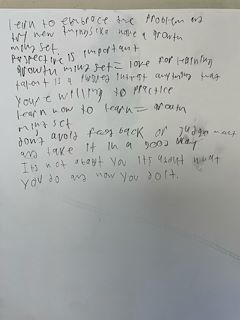 learn to embrace the problem and
try new things like have a growth
mind set.
Perspective is important
growth mind set = love for learning
talent is a pursued interest anything that
you're willing to practice
learn how to learn = growth
mind set
don't avoid feed back or judgement
and take it in a good way
Its not about you its about what
you do and how you do it.